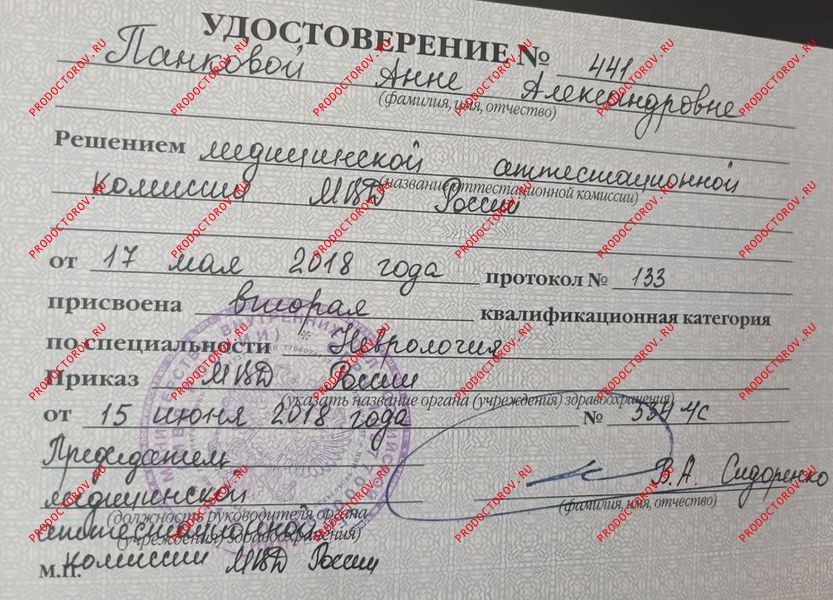 УДОСТОВЕРЕНИЕ № 441
Панковой Анне Александровне
(фамилия, имя, отчество)
Решением медицинской аттестационной
(название аттестационной комиссии)
комиссии МВД России
от 17 мая 2018 года протокол № 133
присвоена вторая квалификационная категория
по специальности Неврология
Приказ МВД России
(указать название органа (учреждения) здравоохранения)
от 15 июня 2018 года № 534 л/с
Председатель
медицинской В.А. Сидоренко
(должность руководителя органа (фамилия, имя, отчество)
аттестационной
(учреждения) здравоохранения)
комиссии МВД России
М.П.
PRODOCTOROV.RU